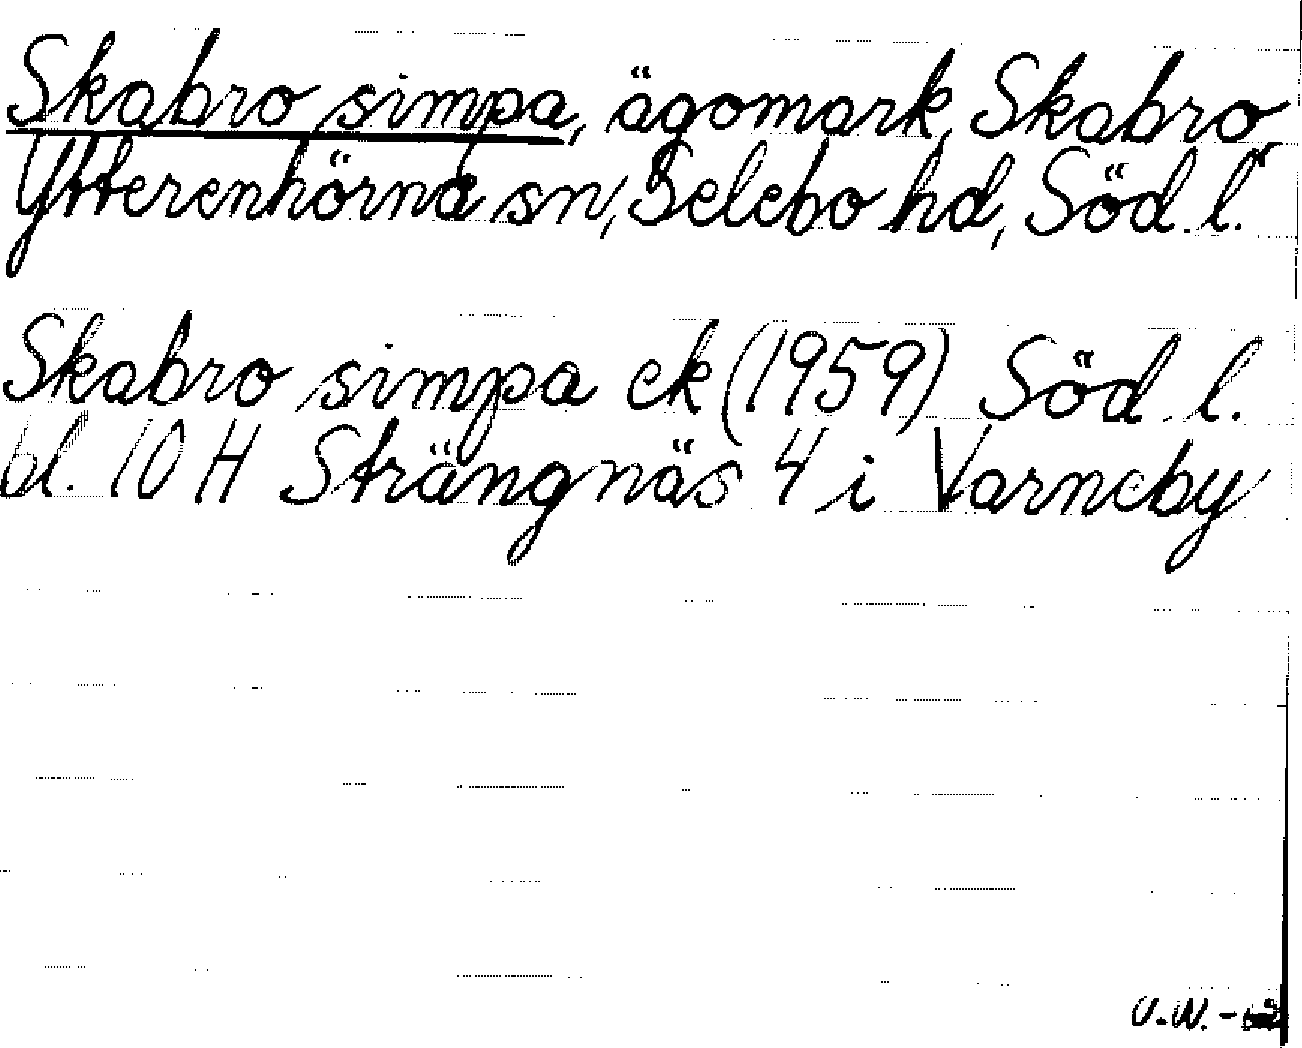 Skabro simpa, ägomark, Skabro,
Ytterenhörna sn, Selebo hd, Söd. l.
Skabro simpa ek (1959) Söd. l.
bl. 10 H Strängnäs 4 i Varneby
U.W. -